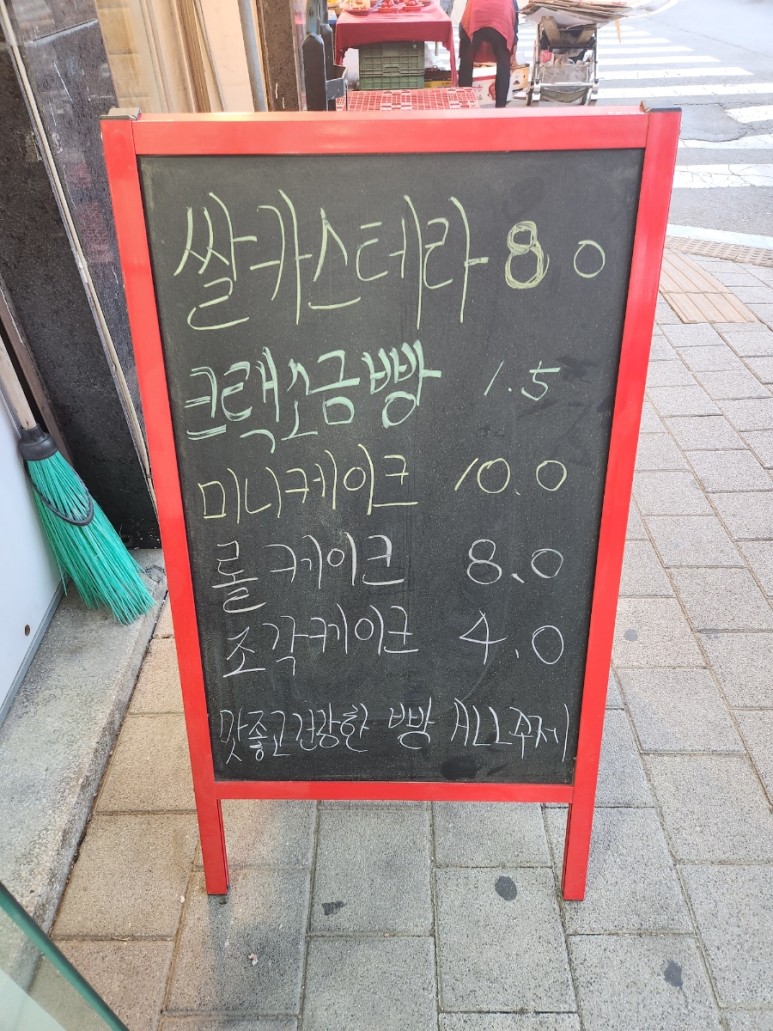 쌀카스테라 8 0
크랙소금빵 1.5
미니케이크 10.0
롤케이크 8.0
조각케이크 4.0
맛좋고건강한 빵 ALL수제